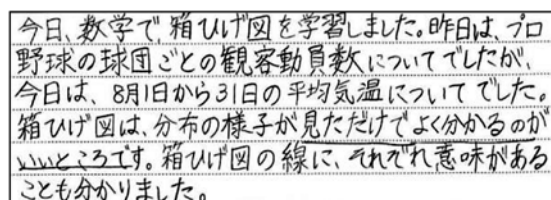 今日、数学で、箱ひげ図を学習しました。昨日は、プロ
野球の球団ごとの観客動員数についてでしたが、
今日は、8月1日から31日の平均気温についてでした。
箱ひげ図は、分布の様子が見ただけでよく分かるのが
いいところです。箱ひげ図の線に、それぞれ意味がある
ことも分かりました。